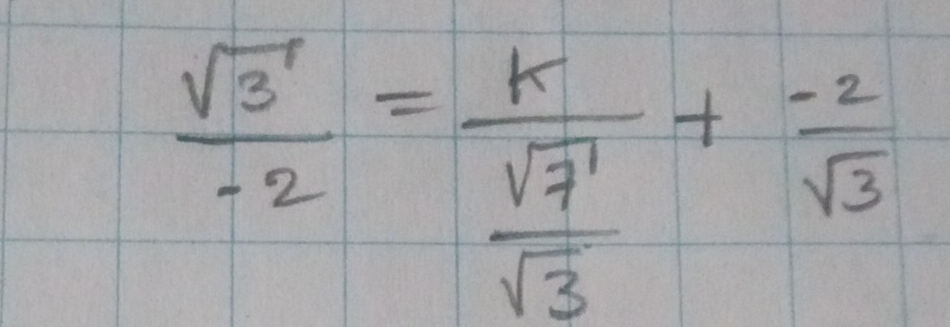 \frac{\sqrt{3}}{-2} = \frac{K}{\frac{\sqrt{7}}{\sqrt{3}}} + \frac{-2}{\sqrt{3}}